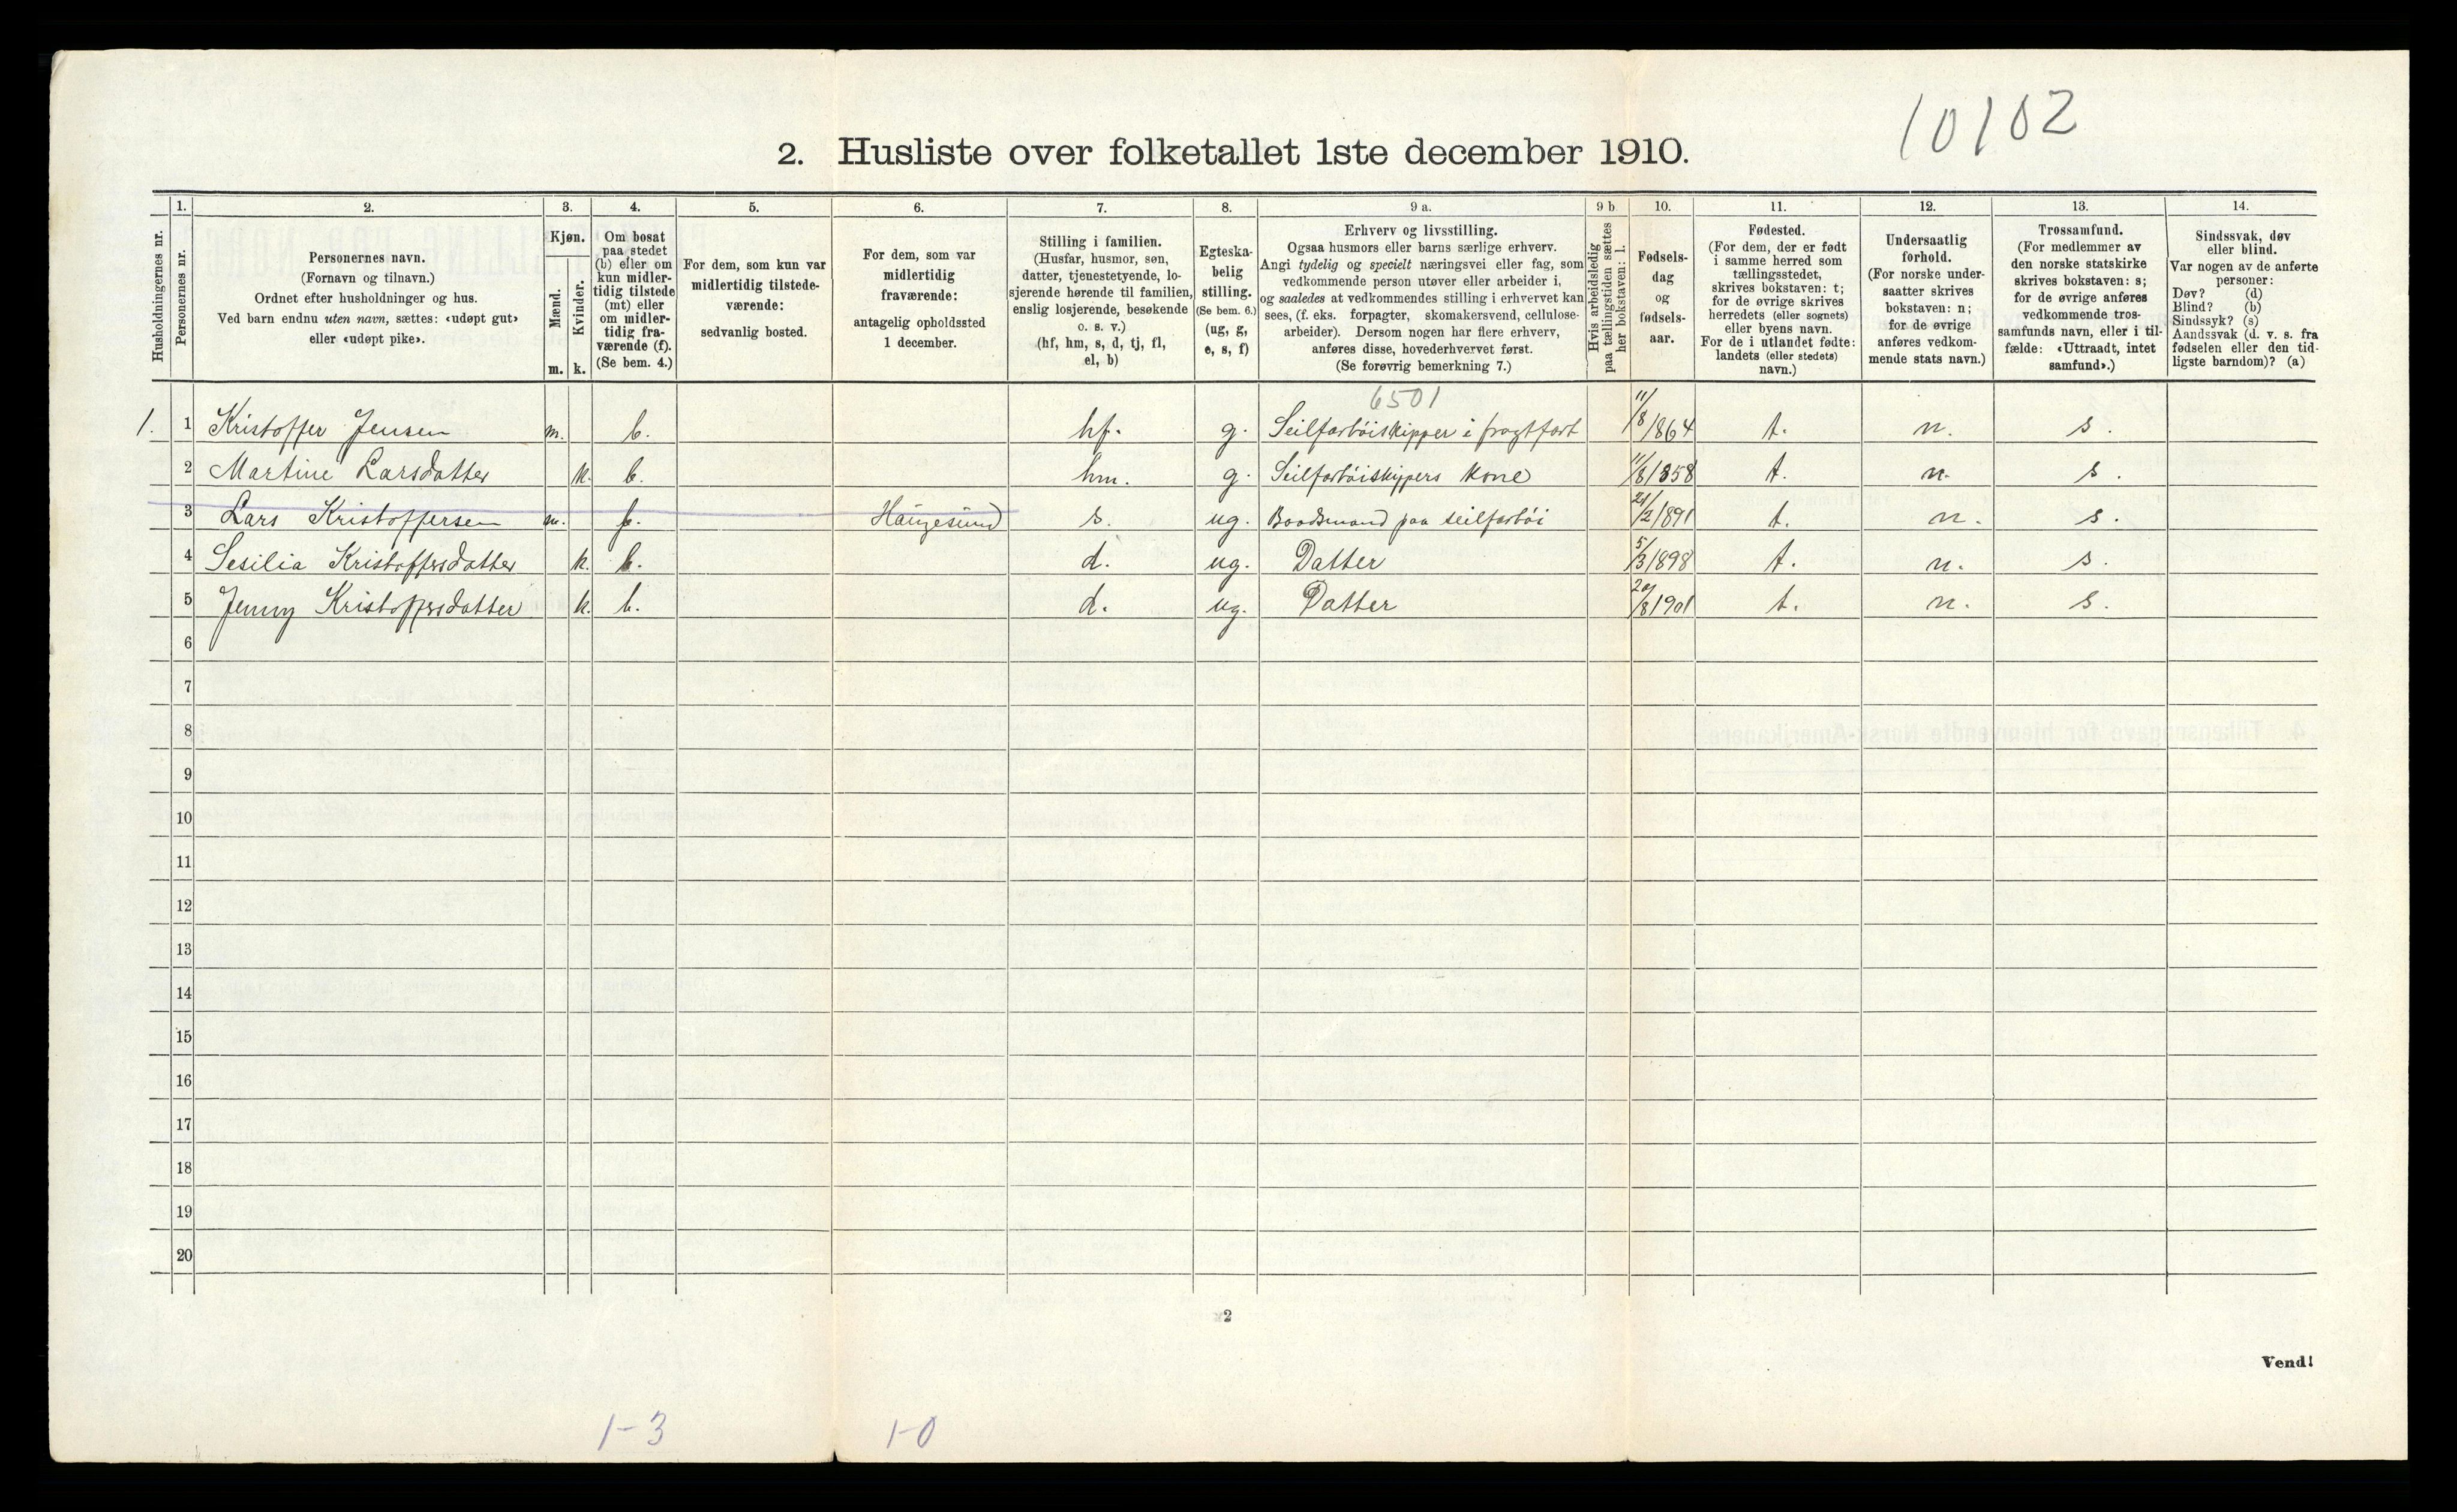 10102
2. Husliste over folketallet 1ste december 1910.
1. 2. 3. 4. 5. 6. 7. 8. 9 a. 9 b. 10. 11. 12. 13. 14.
Husholdningernes nr.
Personernes nr.
Personernes navn.
(Fornavn og tilnavn.)
Ordnet efter husholdninger og hus.
Ved barn endnu uten navn, sættes: «udøpt gut»
eller «udøpt pike».
Kjøn.
Mænd.
Kvinder.
m. k.
Om bosat
paa stedet
(b) eller om
kun midler-
tidig tilstede
(mt) eller
om midler-
tidig fra-
værende (f).
(Se bem. 4.)
For dem, som kun var
midlertidig tilstede-
værende:
sedvanlig bosted.
For dem, som var
midlertidig
fraværende:
antagelig opholdssted
1 december.
Stilling i familien.
(Husfar, husmor, søn,
datter, tjenestetyende, lo-
sjerende hørende til familien,
enslig losjerende, besøkende
o. s. v.)
(hf, hm, s, d, tj, fl,
el, b)
Egteska-
belig
stilling.
(Se bem. 6.)
(ug, g,
e, s, f)
Erhverv og livsstilling.
Ogsaa husmors eller barns særlige erhverv.
Angi tydelig og specielt næringsvei eller fag, som
vedkommende person utøver eller arbeider i,
og saaledes at vedkommendes stilling i erhvervet kan
sees, (f. eks. forpagter, skomakersvend, cellulose-
arbeider). Dersom nogen har flere erhverv,
anføres disse, hovederhvervet først.
(Se forøvrig bemerkning 7.)
Hvis arbeidsledig
paa tællingstiden sættes
her bokstaven: l.
Fødsels-
dag
og
fødsels-
aar.
Fødested.
(For dem, der er født
i samme herred som
tællingsstedet,
skrives bokstaven: t;
for de øvrige skrives
herredets (eller sognets)
eller byens navn.
For de i utlandet fødte:
landets (eller stedets)
navn.)
Undersaatlig
forhold.
(For norske under-
saatter skrives
bokstaven: n;
for de øvrige
anføres vedkom-
mende stats navn.)
Trossamfund.
(For medlemmer av
den norske statskirke
skrives bokstaven: s;
for de øvrige anføres
vedkommende tros-
samfunds navn, eller i til-
fælde: «Uttraadt, intet
samfund».)
Sindssvak, døv
eller blind.
Var nogen av de anførte
personer:
Døv? (d)
Blind? (b)
Sindssyk? (s)
Aandssvak (d. v. s. fra
fødselen eller den tid-
ligste barndom)? (a)
6501
1. 1 Kristoffer Jensen m. b. hf. g. Seilfartøiskipper i fragtfart 11/8 1864 t. n. s.
2 Martine Larsdatter k. b. hm. g. Seilfartøiskippers kone 11/8 1858 t. n. s.
3 Lars Kristoffersen m. f. Haugesund s. ug. Baadsmand paa seilfartøi 21/2 1891 t. n. s.
4 Sesilia Kristoffersdatter k. b. d. ug. Datter 5/3 1898 t. n. s.
5 Jenny Kristoffersdatter k. b. d. ug. Datter 20/8 1901 t. n. s.
6
7
8
9
10
11
12
13
14
15
16
17
18
19
20
2
Vend!
1-3 1-0